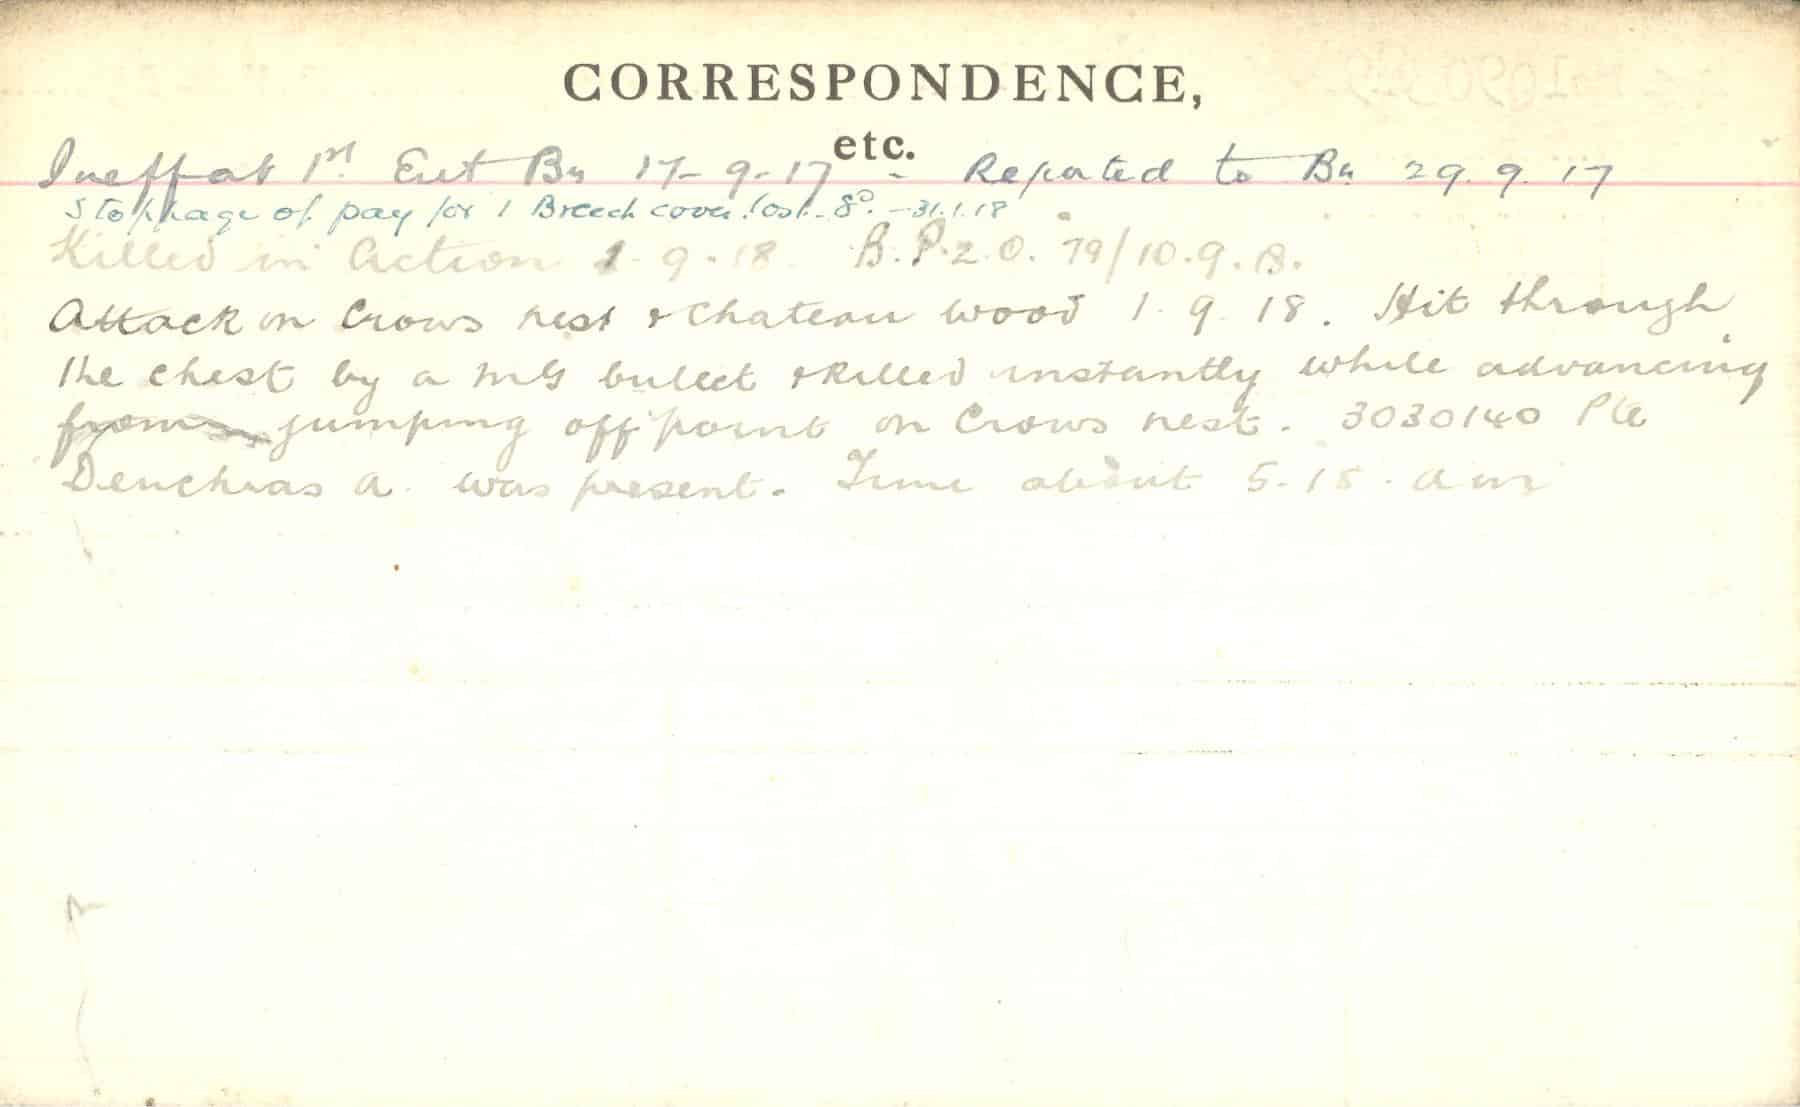 CORRESPONDENCE,
etc.
1st Ent Bn 17-9-17 - Reported to Bn 29.9.17
Stoppage of pay for 1 Breech cover lost - 31.1.18
Killed in Action 1-9-18 B.P.2.O. 79/10.9.18.
Attack on Crows nest & Chateau Wood 1.9.18. Hit through
the chest by a MG bullet & killed instantly while advancing
from jumping off point on Crows nest. 3030140 Pte
Denchras A. was present. Time about 5.15. am